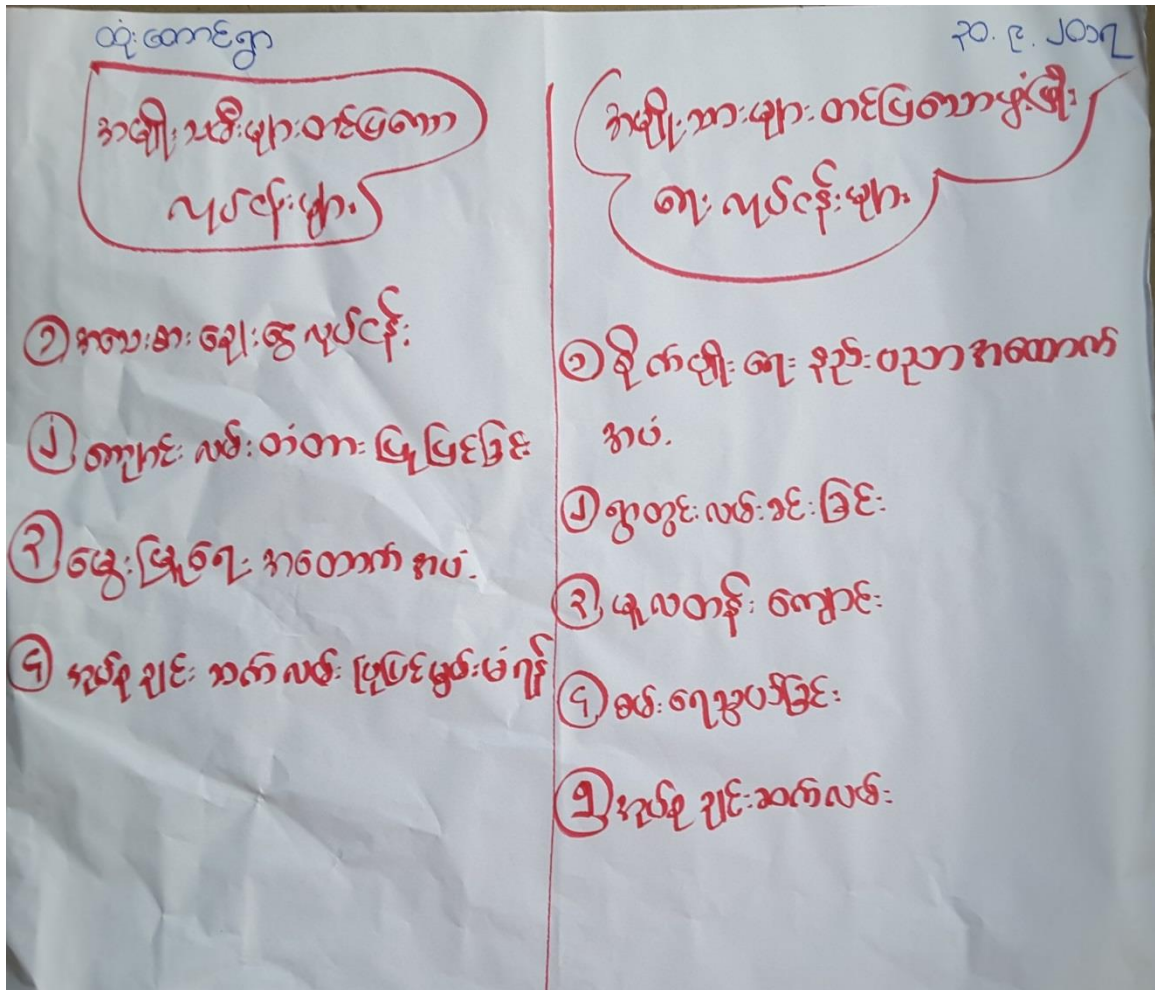 ထုံးတောင်ရွာ
၃၀. ၉. ၂၀၁၇
အမျိုးသမီးများတင်ပြသော
လုပ်ငန်းများ
၁ အသေးစား ချေးငွေ လုပ်ငန်း
၂ ကျောင်း လမ်း တံတား ပြုပြင်ခြင်း
၃ မွေးမြူရေး အထောက် အပံ.
၄ အုပ်စု ချင်း ဆက် လမ်း ပြုပြင်မွမ်းမံရန်
အမျိုးသားများ တင်ပြသောဖွံ့ဖြိုး
ရေး လုပ်ငန်းများ
၁ စိုက်ပျိုး ရေး နည်း ပညာ အထောက်
အပံ.
၂ ရွာတွင်း လမ်း ခင်း ခြင်း
၃ မူလတန်း ကျောင်း
၄ စမ်း ရေသွယ်ခြင်း
၅ အုပ်စု ချင်းဆက်လမ်း